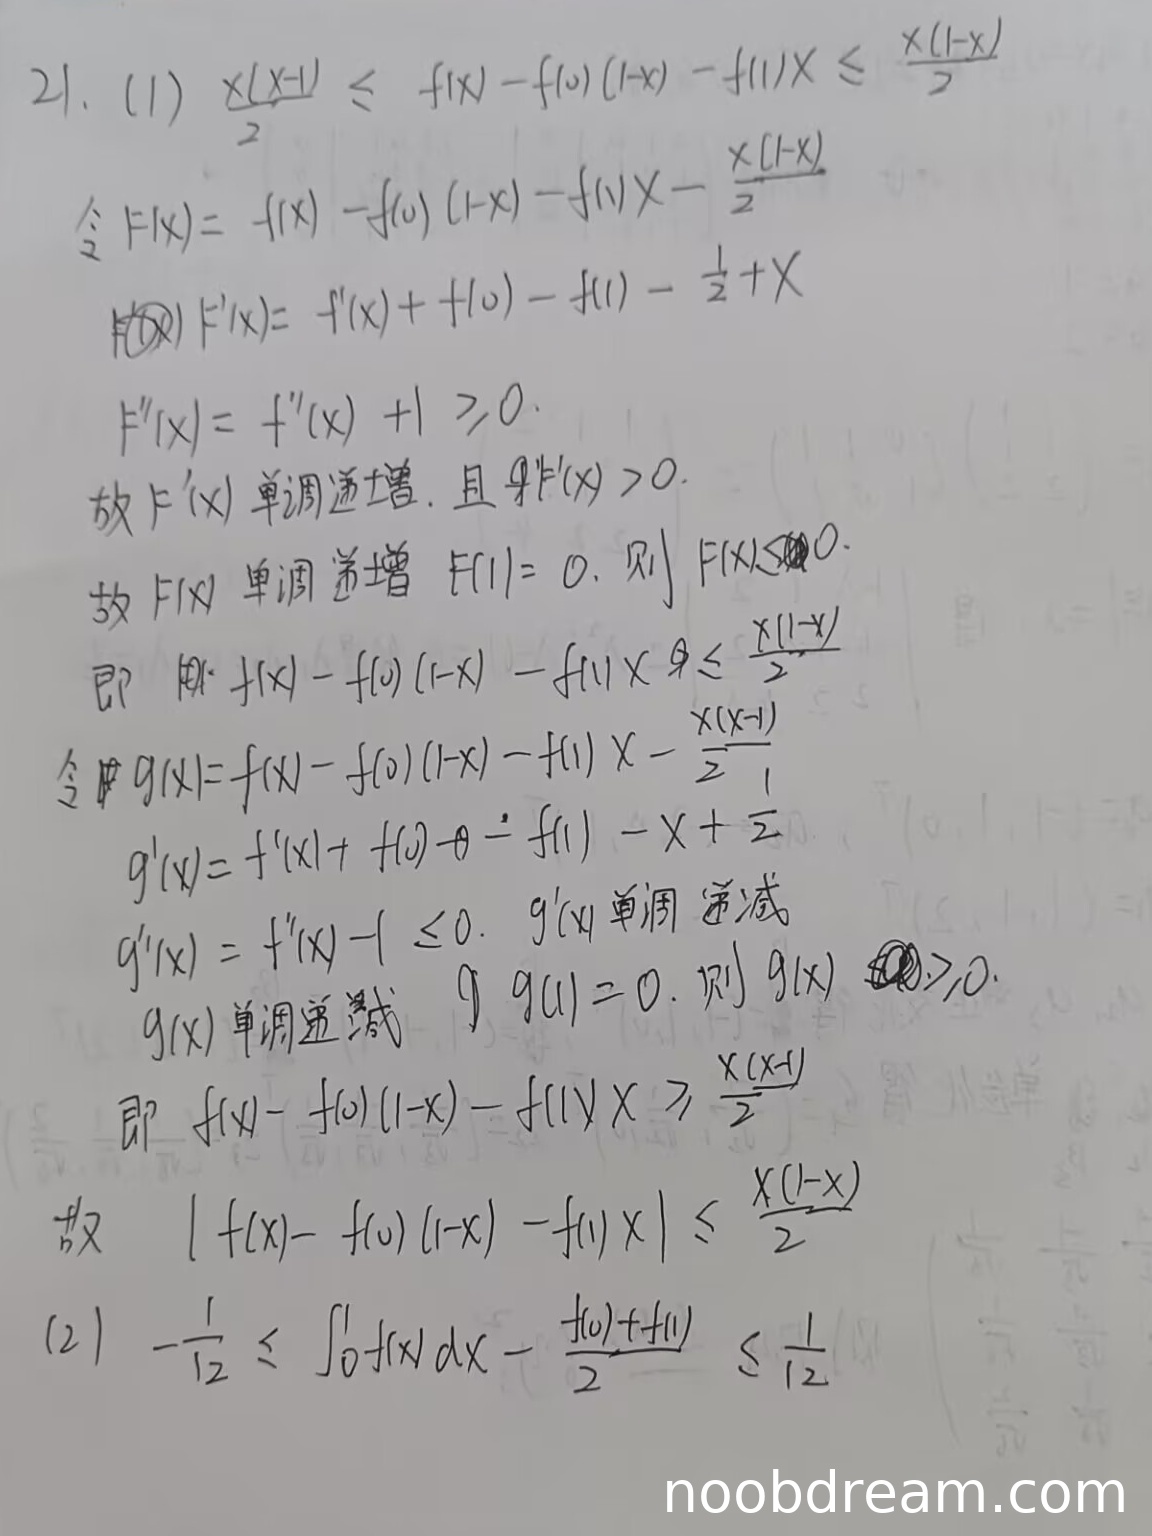 21. (1) x(x-1)/2 ≤ f(x) - f(0)(1-x) - f(1)x ≤ x(1-x)/2
令 F(x) = f(x) - f(0)(1-x) - f(1)x - x(1-x)/2
F'(x) = f'(x) + f(0) - f(1) - 1/2 + x
F''(x) = f''(x) + 1 ≥ 0.
故 F'(x) 单调递增. 且 F'(x) > 0.
故 F(x) 单调递增 F(1) = 0. 则 F(x) ≤ 0.
即 f(x) - f(0)(1-x) - f(1)x ≤ x(1-x)/2
令 g(x) = f(x) - f(0)(1-x) - f(1)x - x(x-1)/2
g'(x) = f'(x) + f(0) - f(1) - x + 1/2
g''(x) = f''(x) - 1 ≤ 0. g'(x) 单调递减
g(x) 单调递减 g(1) = 0. 则 g(x) ≥ 0.
即 f(x) - f(0)(1-x) - f(1)x ≥ x(x-1)/2
故 |f(x) - f(0)(1-x) - f(1)x| ≤ x(1-x)/2
(2) -1/12 ≤ ∫₀¹ f(x)dx - (f(0)+f(1))/2 ≤ 1/12
noobdream.com